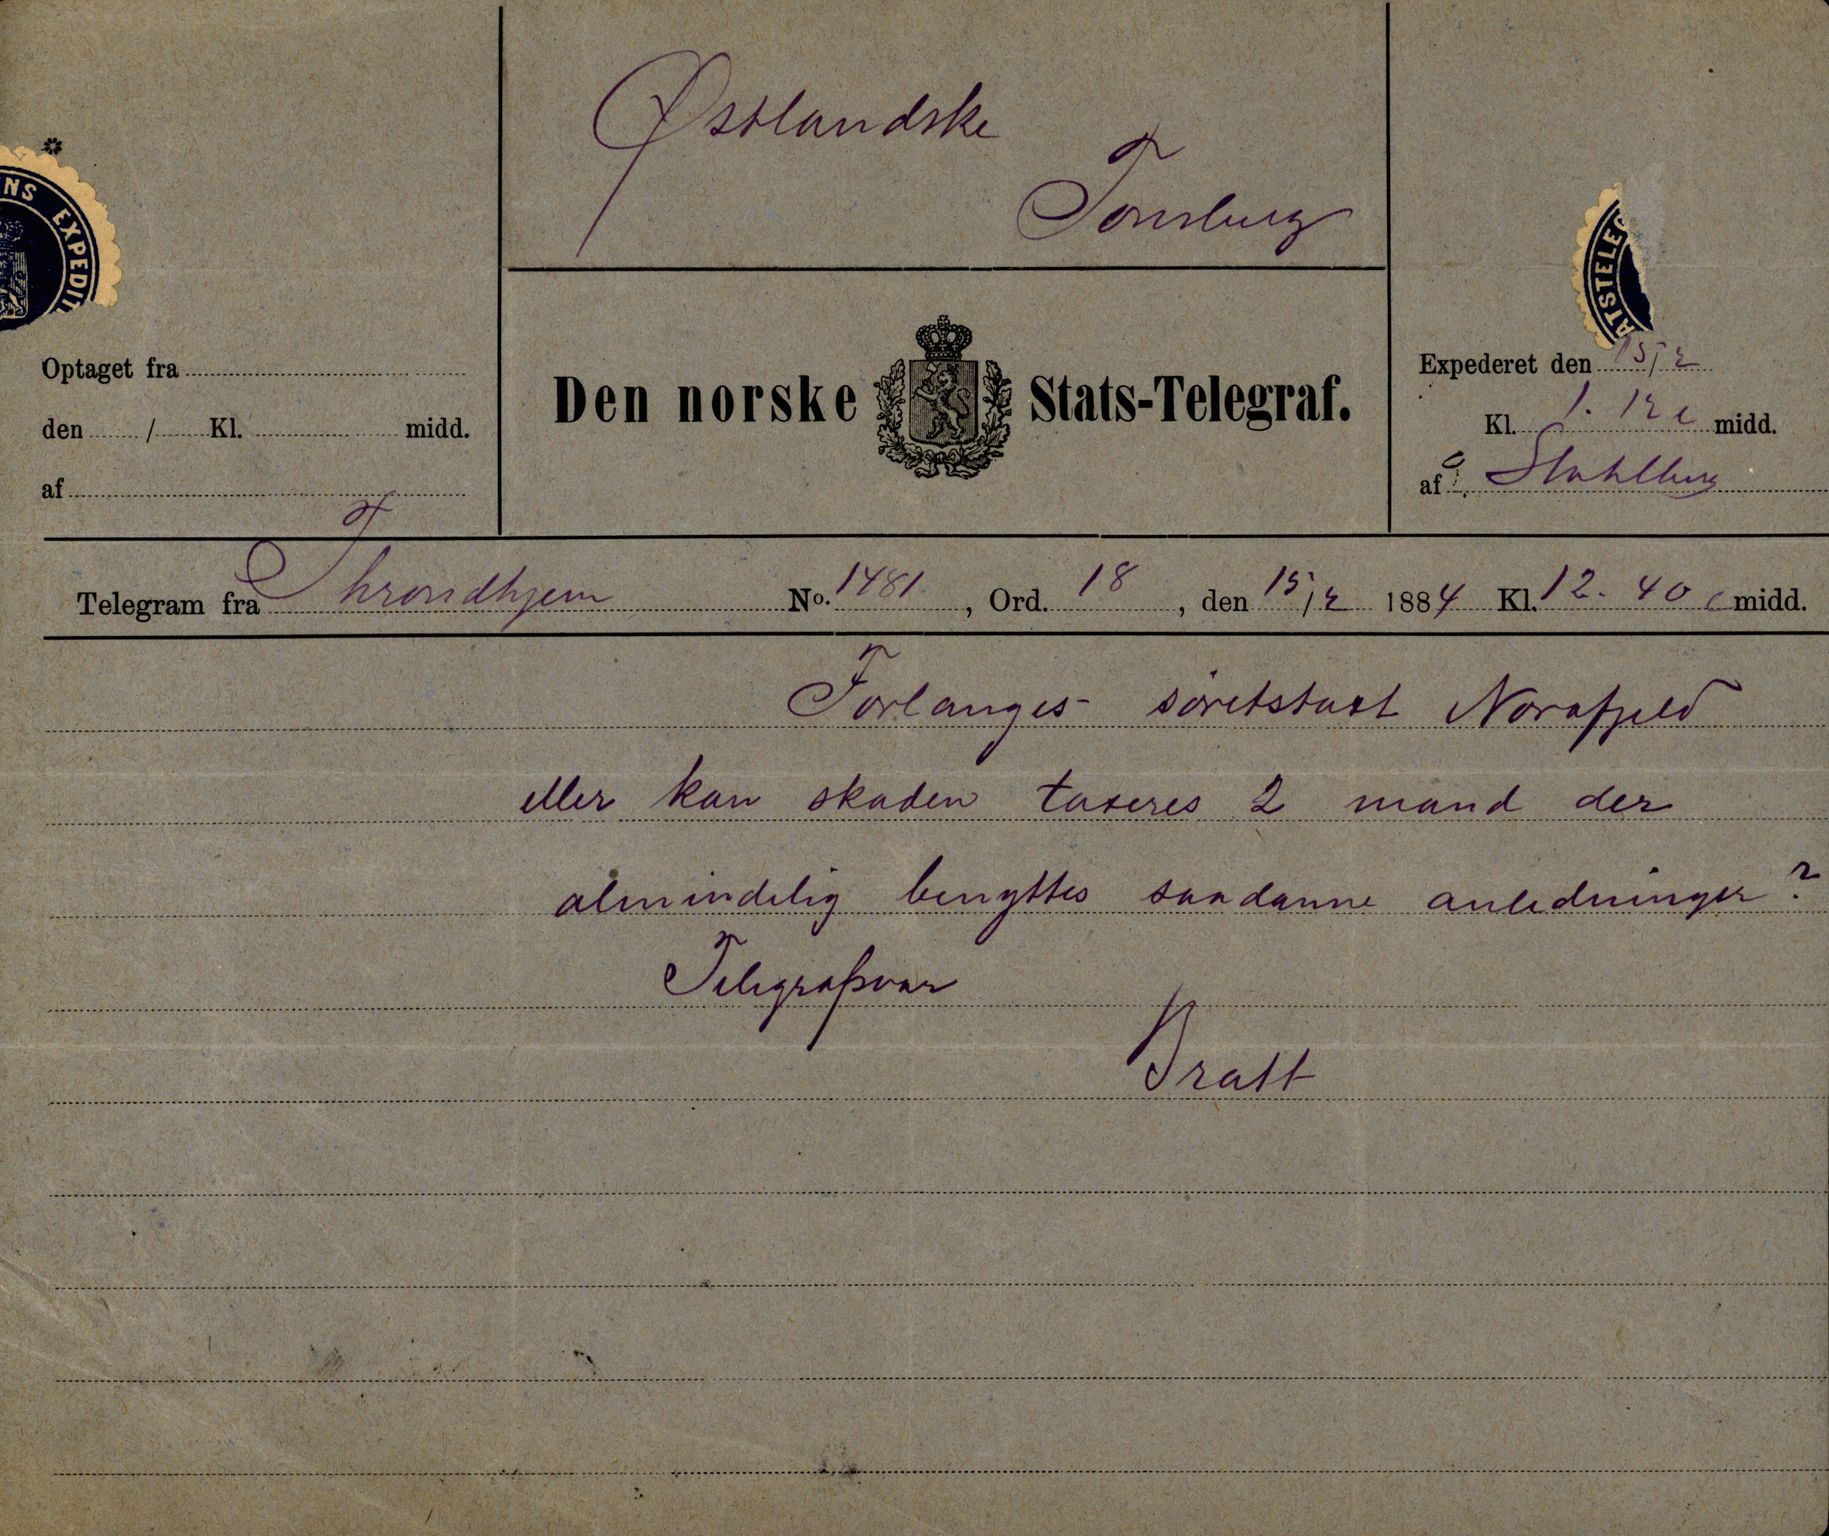 Østlandske
Tonsberg
NS EXPEDIT
ATSTELEG
Optaget fra
den / Kl. midd.
af
Den norske Stats-Telegraf.
Expederet den 15/2
Kl. 1. 12 e midd.
af Stahlberg
Telegram fra Throndhjem No. 1481, Ord. 18, den 15/2 1884 Kl. 12. 40 e midd.
Forlanges söretstaxt Norafjeld
eller kan skaden taxeres 2 mand der
almindelig benyttes saadanne anledninger?
Telegrafsvar
Bratt